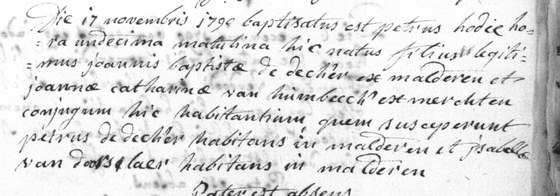 Die 17 novembris 1790 baptisatus est petrus hodie ho-
-ra undecima matutina hic natus filius legiti-
-mus joannis baptistæ de decker ex malderen et
joannæ catharinæ van humbeeck ex merchten
conjugum hic habitantium quem susceperunt
petrus de decker habitans in malderen et isabella
van doorslaer habitans in malderen
Pater est absens